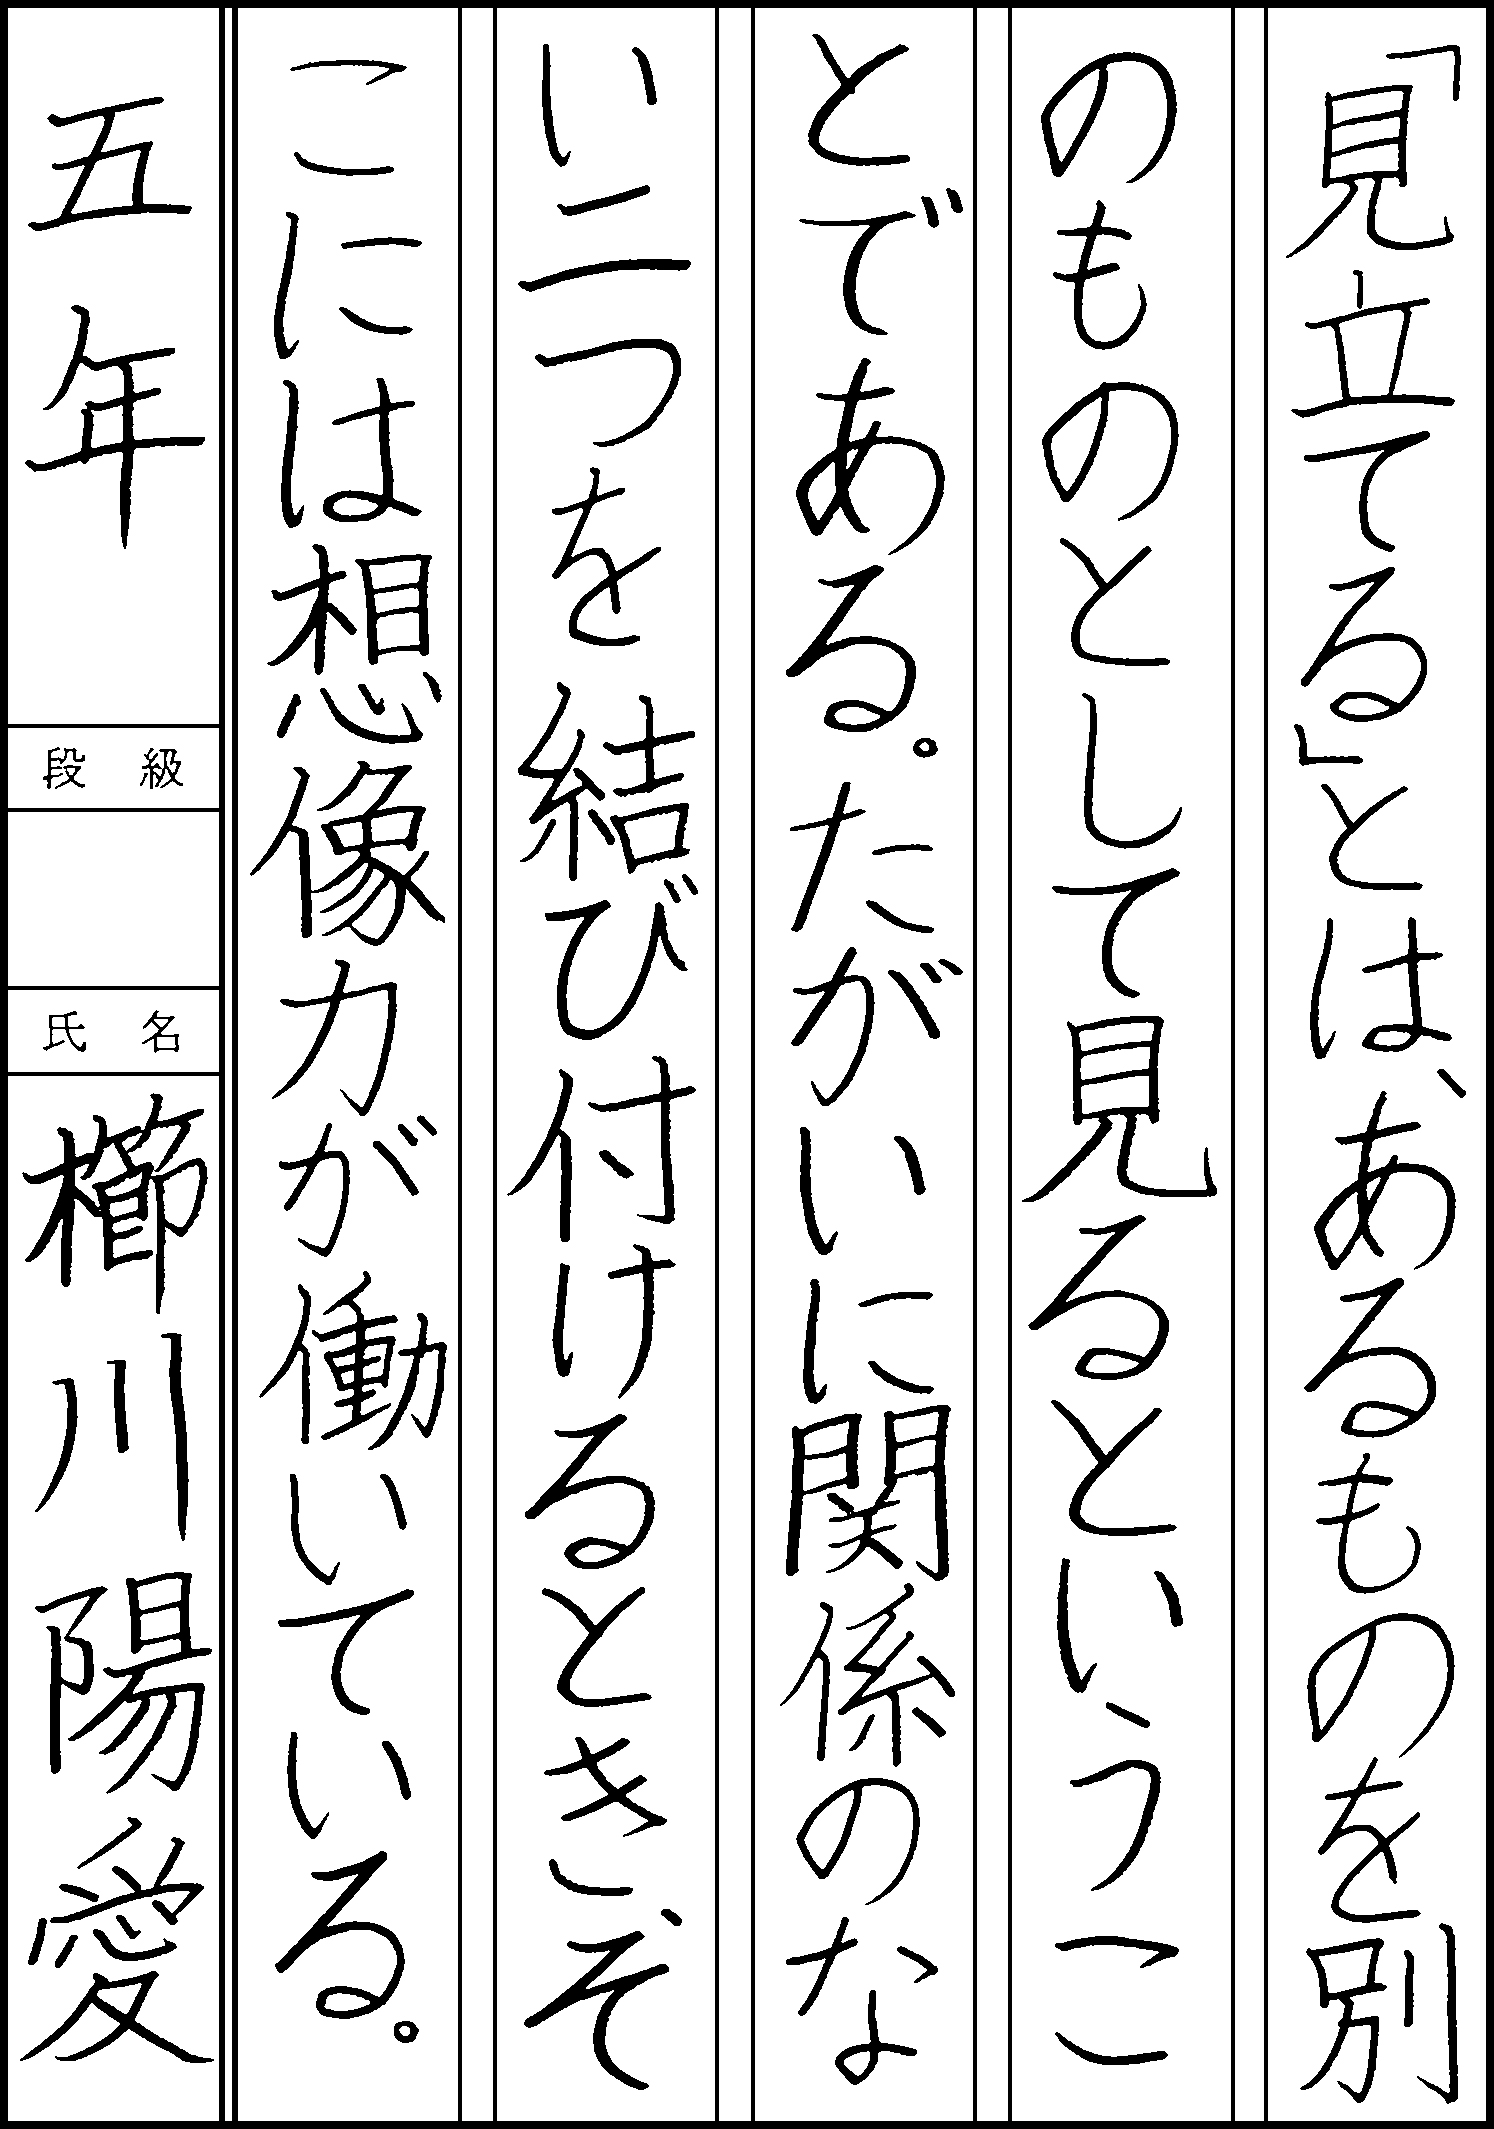 「見立てる」とは、あるものを別
のものとして見るというこ
とである。たがいに関係のな
い二つを結び付けるとき、そ
こには想像力が働いている。
五年
段級
氏名
櫛川陽愛